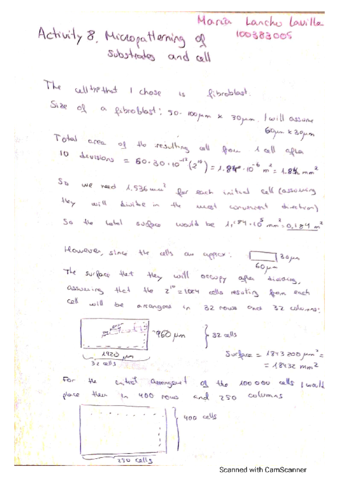 María Lancho Lavilla
100383005
Activity 8. Micropatterning of
substrates and cell
The cell type that I chose is fibroblast.
Size of a fibroblast: 50-100µm x 30µm. I will assume
60µm x 30µm
Total area of the resulting cell from 1 cell after
10 divisions = 60·30·10⁻¹²(2¹⁰) = 1,84·10⁻⁶ m² = 1.84 mm²
So we need mm² for each initial cell (assuming
they will divide in the most convenient direction)
So the total surface would be mm² = 0,184 m²
However, since the cells are appear: 30µm
60µm
The surface that they will occupy after dividing,
assuming that the 2¹⁰ = 1024 cells resulting from each
cell will be arranged in 32 rows and 32 columns:
960 µm } 32 cells
1920 µm
32 cells
Surface = 1843200 µm² =
= 1,8432 mm²
For the initial arrangement of the 100 000 cells I would
place them in 400 rows and 250 columns
400 cells
250 cells
Scanned with CamScanner